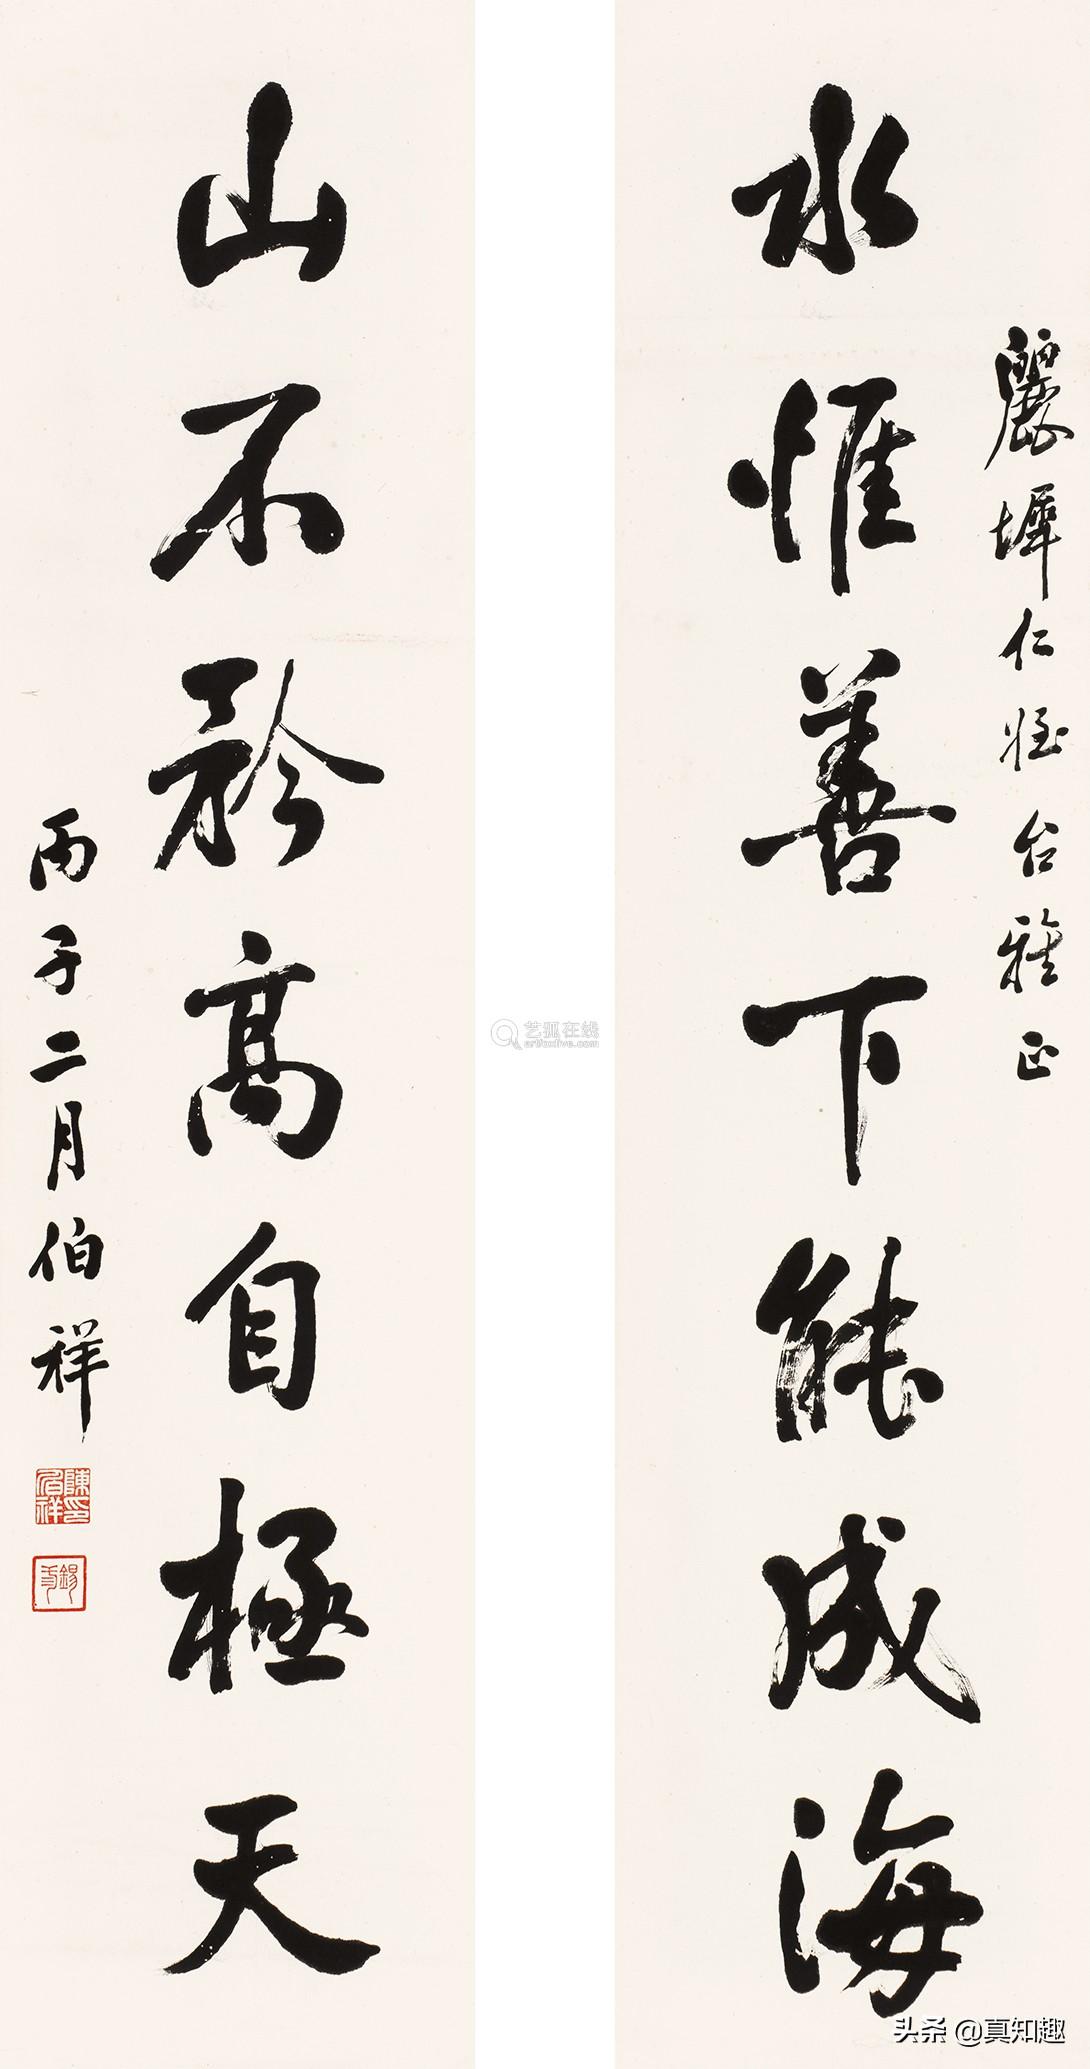 麗墀仁侄台雅正
水惟善下能成海
山不矜高自極天
丙子二月伯祥
艺狐在线
artfoxlive.com
头条 @真知趣